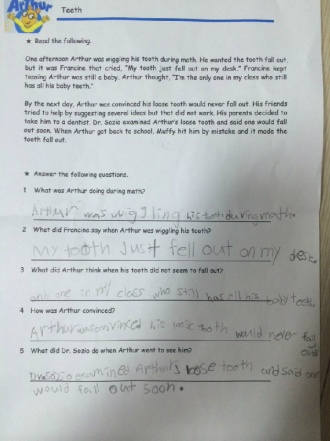 Arthur
Teeth
★ Read the following.
One afternoon Arthur was wiggling his tooth during math. He wanted the tooth fall out,
but it was Francine that cried, "My tooth just fell out on my desk." Francine kept
teasing Arthur was still a baby. Arthur thought, "I'm the only one in my class who still
has all his baby teeth."
By the next day, Arthur was convinced his loose tooth would never fall out. His friends
tried to help by suggesting several ideas but that did not work. His parents decided to
take him to a dentist. Dr. Sozio examined Arthur's loose tooth and said one would fall
out soon. When Arthur got back to school, Muffy hit him by mistake and it made the
tooth fall out.
★ Answer the following questions.
1 What was Arthur doing during math?
Arthur was wiggling his tooth during math.
2 What did Francine say when Arthur was wiggling his tooth?
My tooth just fell out on my desk
3 What did Arthur think when his tooth did not seem to fall out?
only one in my class who still has all his baby teeth.
4 How was Arthur convinced?
Arthur was convinced his loose tooth would never fall
out
5 What did Dr. Sozio do when Arthur went to see him?
Dr. Sozio examined Arthur's loose tooth and said one
would fall out soon.